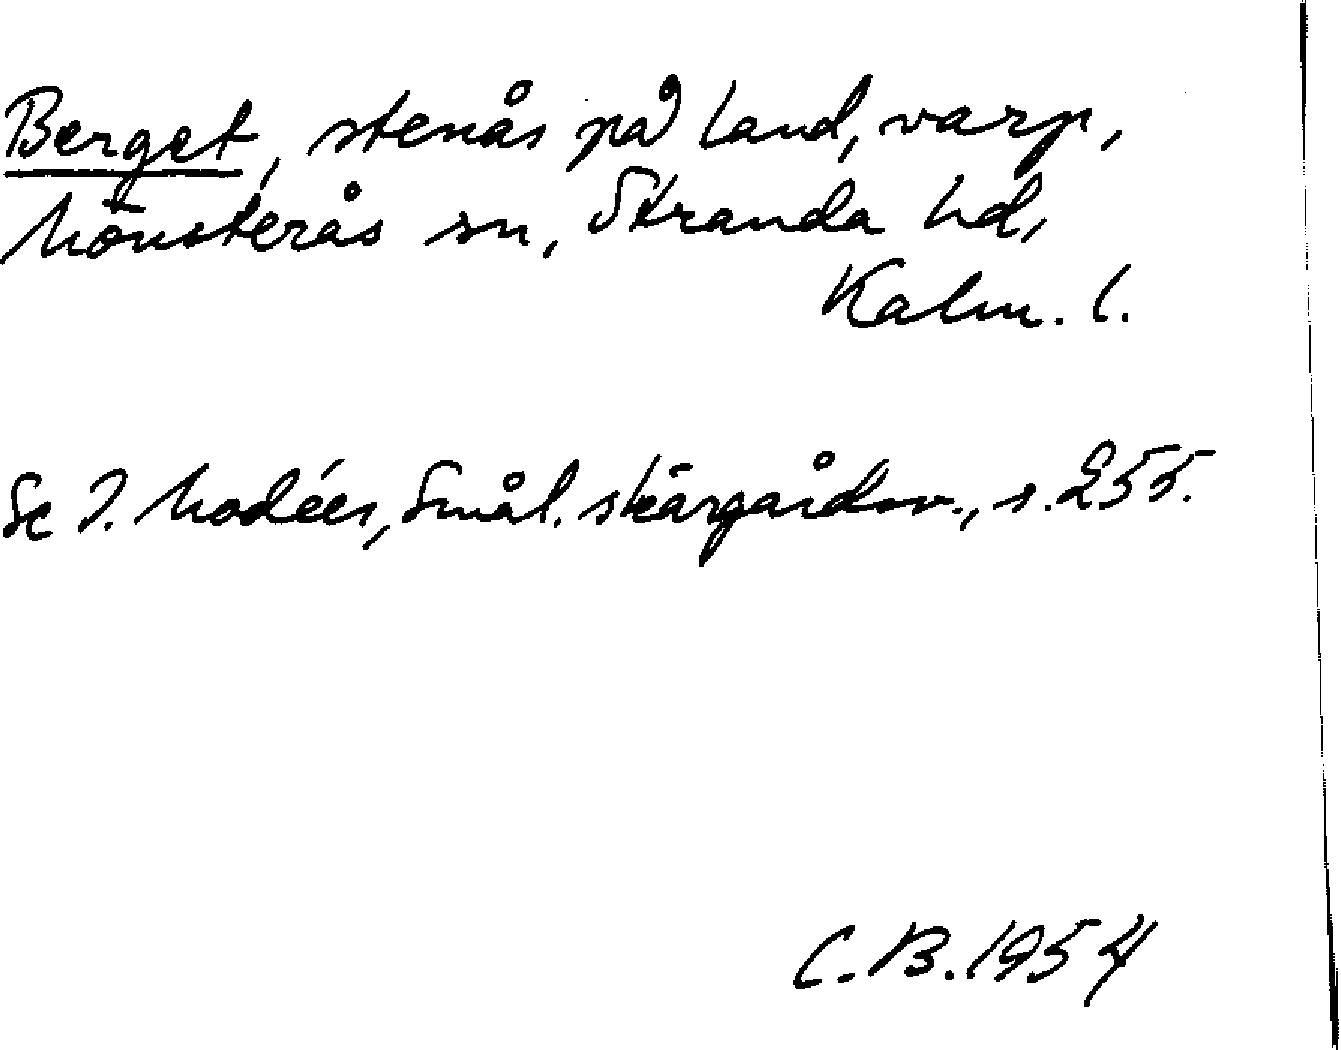 Berget, stenås på land, varp,
Mönsterås sn, Stranda hd,
Kalm. l.
Se I. Modéer, Smål. skärgårdsn., s. 255.
C. B. 1954